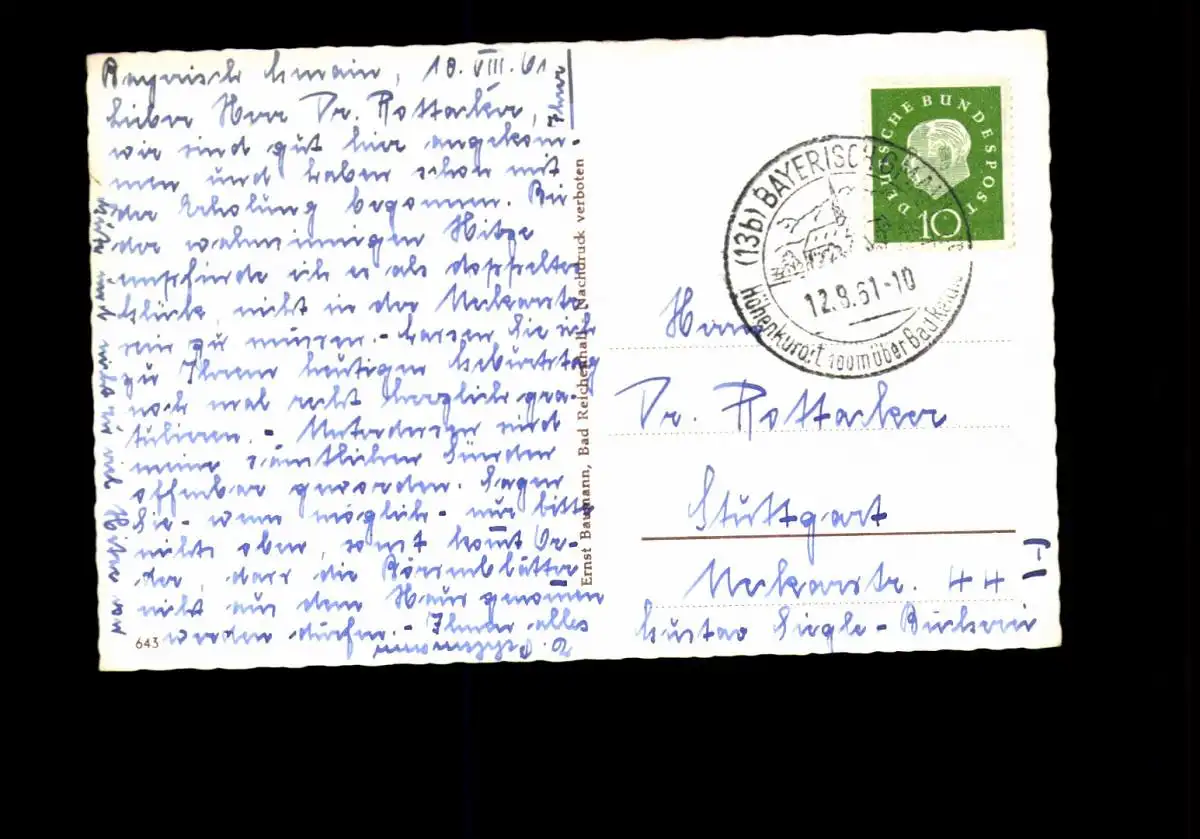 Bayrisch Gmain, 10. VIII. 61
Lieber Herr Dr. Rottacker,
wir sind gut hier angekom-
men und haben schon mit
der Erholung begonnen. Bei
der wahnsinnigen Hitze
empfinde ich es als doppeltes
Glück, nicht in der Neckarstr.
sein zu müssen. - Lassen Sie sich
zu Ihrem heutigen Geburtstag
noch mal recht herzlich gra-
tulieren. - Unterdessen sind
meine sämtlichen Sünden
offenbar geworden. Sagen
Sie - wenn möglich - nur bitte
nichts oben, sonst kommt Or-
der, dass die Börsenblätter
nicht aus dem Haus genommen
werden dürfen. - Ihnen alles
643
Ernst Baumann, Bad Reichenhall. Nachdruck verboten
DEUTSCHE BUNDESPOST
10
(13b) BAYERISCH GMAIN
12.8.61-10
Höhenkurort 100m über Bad
Herrn
Dr. Rottacker
Stuttgart
Neckarstr. 44
Gustav Siegle-Bücherei